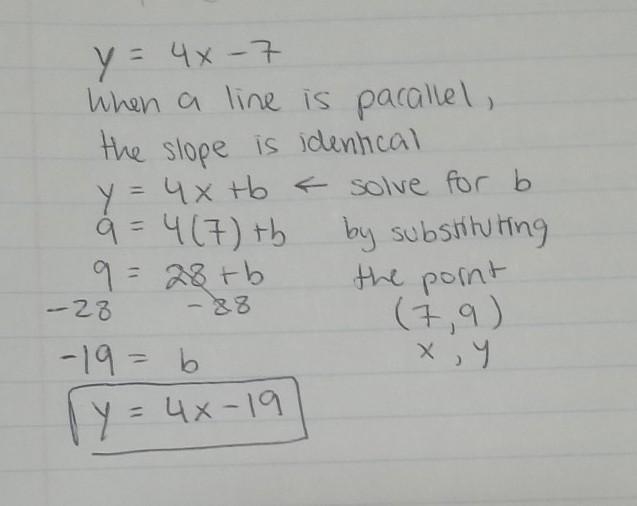 y = 4x - 7
When a line is parallel,
the slope is identical
y = 4x + b ← solve for b
9 = 4(7) + b by substituting
9 = 28 + b the point
-28 -28 (7,9)
-19 = b x, y
y = 4x - 19